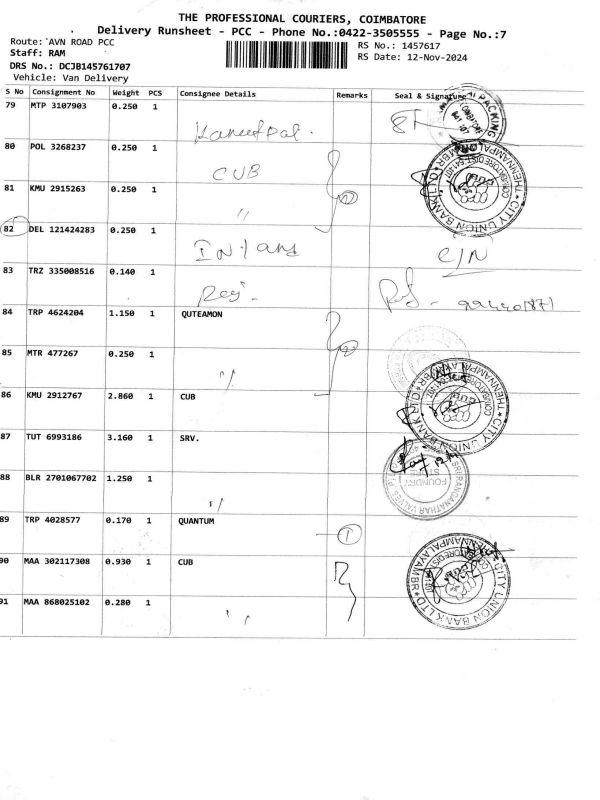 THE PROFESSIONAL COURIERS, COIMBATORE
Delivery Runsheet - PCC - Phone No.:0422-3505555 - Page No.:7
Route: AVN ROAD PCC
RS No.: 1457617
Staff: RAM
RS Date: 12-Nov-2024
DRS No.: DCJB145761707
Vehicle: Van Delivery
S No Consignment No Weight PCS Consignee Details Remarks Seal & Signature
79 MTP 3107903 0.250 1
80 POL 3268237 0.250 1 CUB
81 KMU 2915263 0.250 1 "
82 DEL 121424283 0.250 1
83 TRZ 335008516 0.140 1
84 TRP 4624204 1.150 1 QUTEAMON
85 MTR 477267 0.250 1 "
86 KMU 2912767 2.860 1 CUB
87 TUT 6993186 3.160 1 SRV.
88 BLR 2701067702 1.250 1 "
89 TRP 4028577 0.170 1 QUANTUM 1
90 MAA 302117308 0.930 1 CUB
91 MAA 868025102 0.280 1 "
CITY UNION BANK LTD
CITY UNION BANK LTD
SRI RANGANATHAR VALVES
FOUNDRY
CITY UNION BANK LTD